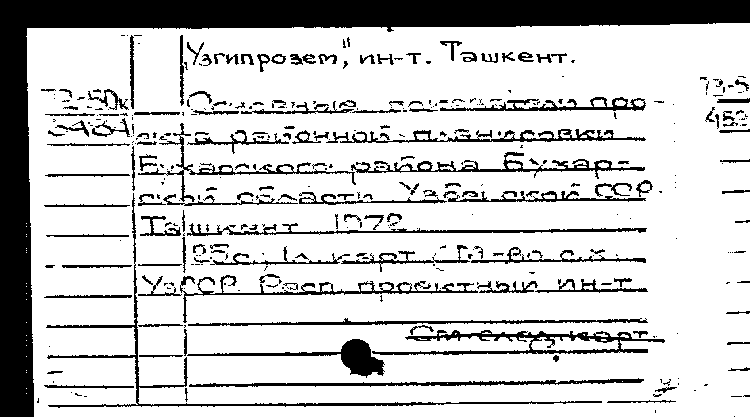 „Узгипрозем", ин-т. Ташкент.
73-50к Основные показатели про-
екта районной планировки
Бухарского района Бухар-
ской области Узбекской ССР.
Ташкент 1972
25с., 1л. карт (М-во с.х.
УзССР. Респ. проектный ин-т
См след. карт.
73-5